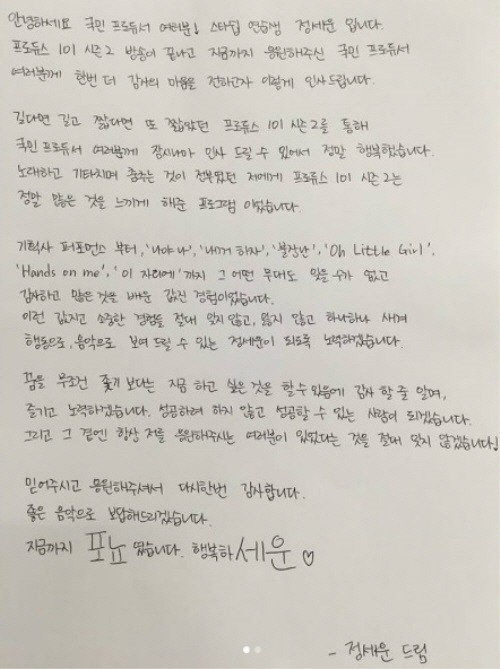 안녕하세요 국민 프로듀서 여러분! 스타쉽 연습생 정세운 입니다.
프로듀스 101 시즌2 방송이 끝나고 지금까지 응원해주신 국민 프로듀서
여러분께 한번 더 감사의 마음을 전하고자 이렇게 인사드립니다.
길다면 길고 짧다면 또 짧았던 프로듀스 101 시즌2를 통해
국민 프로듀서 여러분께 잠시나마 인사 드릴 수 있어서 정말 행복했습니다.
노래하고 기타치며 춤추는 것이 전부였던 저에게 프로듀스 101 시즌2는
정말 많은 것을 느끼게 해준 프로그램 이었습니다.
기획사 퍼포먼스 부터, '나야 나', '내꺼 하자', '불장난', 'Oh Little Girl',
'Hands on me', '이 자리에' 까지 그 어떤 무대도 잊을 수가 없고
감사하고 많은 것을 배운 값진 경험이었습니다.
이런 값지고 소중한 경험들 절대 잊지 않고, 잃지 않고 하나하나 새겨
행동으로, 음악으로 보여 드릴 수 있는 정세운이 되도록 노력하겠습니다.
꿈을 무조건 쫓기 보다는 지금 하고 싶은 것을 할 수 있음에 감사 할 줄 알며,
즐기고 노력하겠습니다. 성공하려 하지 않고 성공할 수 있는 사람이 되겠습니다.
그리고 그 곁엔 항상 저를 응원해주시는 여러분이 있었다는 것을 절대 잊지 않겠습니다!
믿어주시고 응원해주셔서 다시한번 감사합니다.
좋은 음악으로 보답해드리겠습니다.
지금까지 포뇨 였습니다. 행복하세운♡
- 정세운 드림